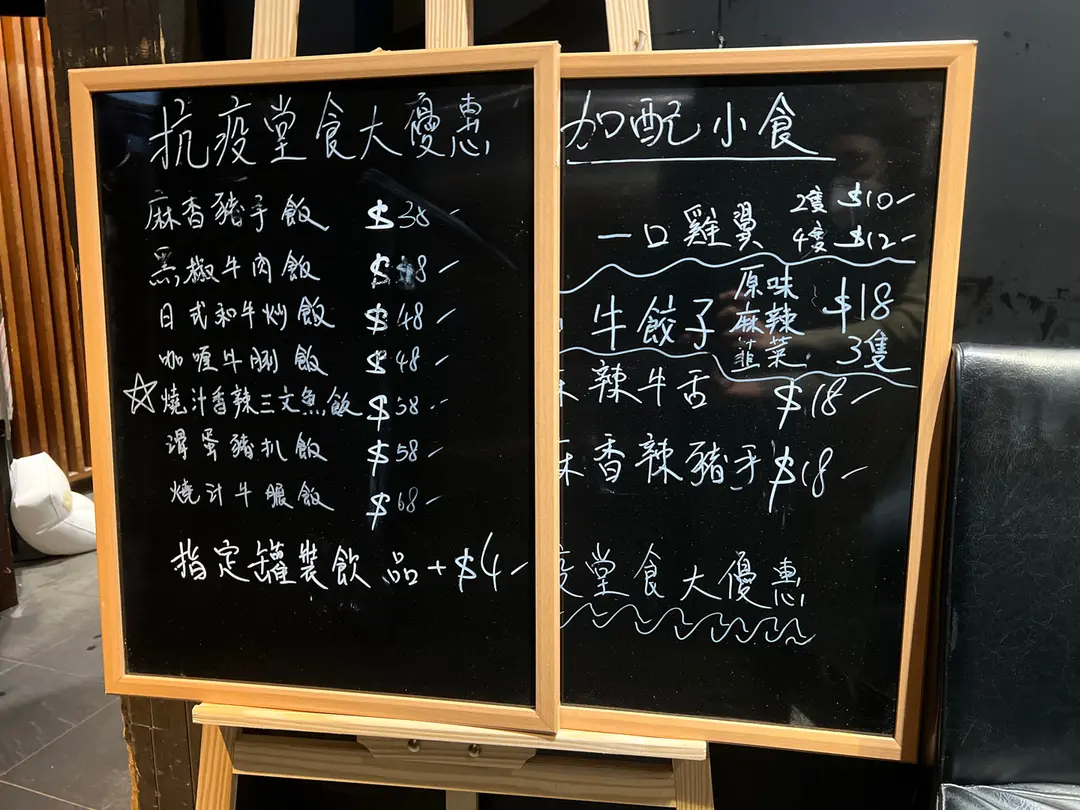 抗疫堂食大優惠
麻香豬手飯 $38
黑椒牛肉飯 $8
日式和牛炒飯 $48
咖喱牛脷飯 $48
☆燒汁香辣三文魚飯 $58
滑蛋豬扒飯 $58
燒汁牛脹飯 $68
指定罐裝飲品+$4
加配小食
一口雞翼 2隻 $10
4隻 $12
牛餃子 原味 麻辣 韮菜 $18 3隻
辣牛舌 $18
香辣豬手 $18
堂食大優惠